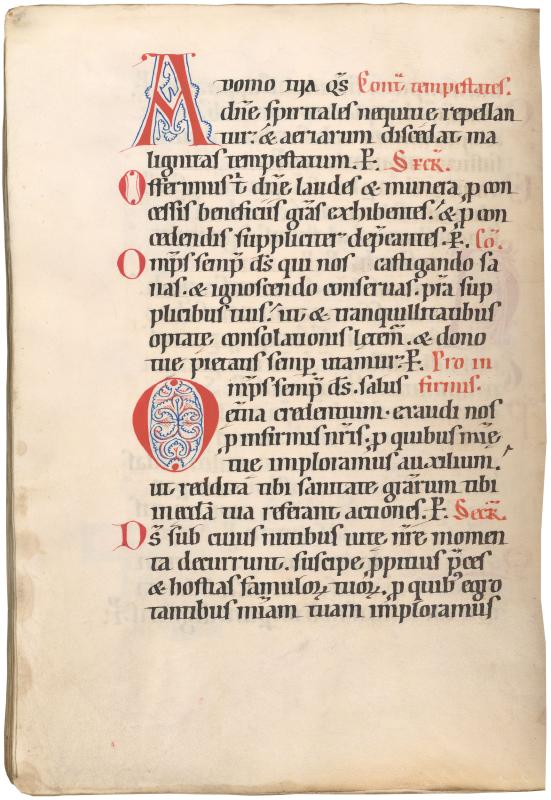 A DOMO TUA Q̄S Cont̄ tempestates.
dn̄e spiritales nequitie repellan
tur. & aeriarum discedat ma
lignitas tempestatum. P. Secr̄.
Offerimus t̄ dn̄e laudes & munera, p con
cessis beneficiis gr̄as exhibentes. & p con
cedendis suppliciter dep̄cantes. P. Cō.
Omp̄s semp̄ ds̄ qui nos castigando sa
nas. & ignoscendo conseruas. p̄ta sup
plicibus tuis. ut & tranquillitatibus
optate consolationis letem̄. & dono
tue pietatis semp utamur. P. Pro in
Omp̄s semp̄ ds̄. salus firmis.
et̄na credentium. exaudi nos
p infirmis nr̄is. p quibus mīe
tue imploramus auxilium.
ut reddita tibi sanitate gr̄arum tibi
in eccl̄a tua referant actiones. P. Secr̄.
Ds̄ sub cuius nutibus uite nr̄e momen
ta decurrunt. suscipe p̄pitius p̄ces
& hostias famuloꝝ tuoꝝ, p quib' egro
tantibus mīam tuam imploramus